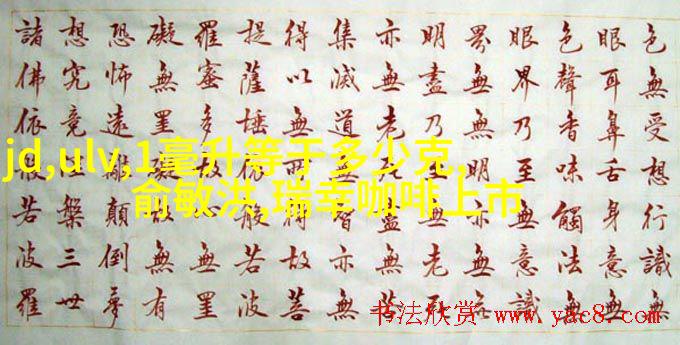 色無受想行識無
眼耳鼻舌身意無
色聲香味觸法無
眼界乃至無意識
界無無明亦無無
明盡乃至無老死
亦無老死盡無苦
集滅道無智亦無
得以無所得故菩
提薩埵依般若波
羅蜜多故無罣
礙無罣礙故無有
恐怖遠離顛倒夢
想究竟槃三世
諸佛依般若波羅
jd,ulv,1毫升等于多少克,
俞敏洪,瑞幸咖啡上市
书法欣赏 www.yac8.com